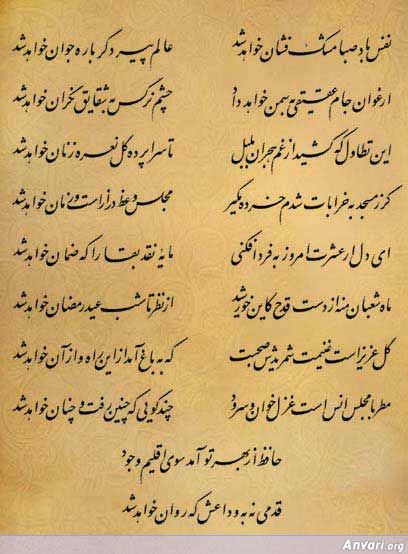 نفس باد صبا مشک فشان خواهد شد عالم پیر دگر باره جوان خواهد شد
ارغوان جام عقیقی به سمن خواهد داد چشم نرگس به شقایق نگران خواهد شد
این تطاول که کشید از غم هجران بلبل تا سراپرده گل نعره زنان خواهد شد
گر ز مسجد به خرابات شدم خرده مگیر مجلس وعظ دراز است و زمان خواهد شد
ای دل ار عشرت امروز به فردا فکنی مایه نقد بقا را که ضمان خواهد شد
ماه شعبان منه از دست قدح کاین خورشید از نظر تا شب عید رمضان خواهد شد
گل عزیز است غنیمت شمریدش صحبت که به باغ آمد از این راه و از آن خواهد شد
مطربا مجلس انس است غزل خوان و سرود چند گویی که چنین رفت و چنان خواهد شد
حافظ از بهر تو آمد سوی اقلیم وجود
قدمی نه به وداعش که روان خواهد شد
Anvari.org